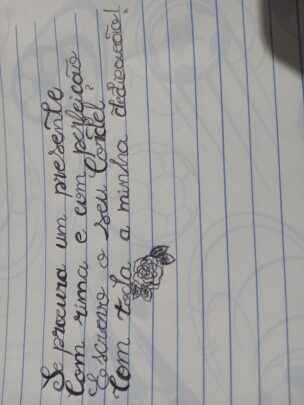 Se procura um presente
Com rima e com perfeição
Escrevo o seu Cordel?
Com toda a minha dedicação!